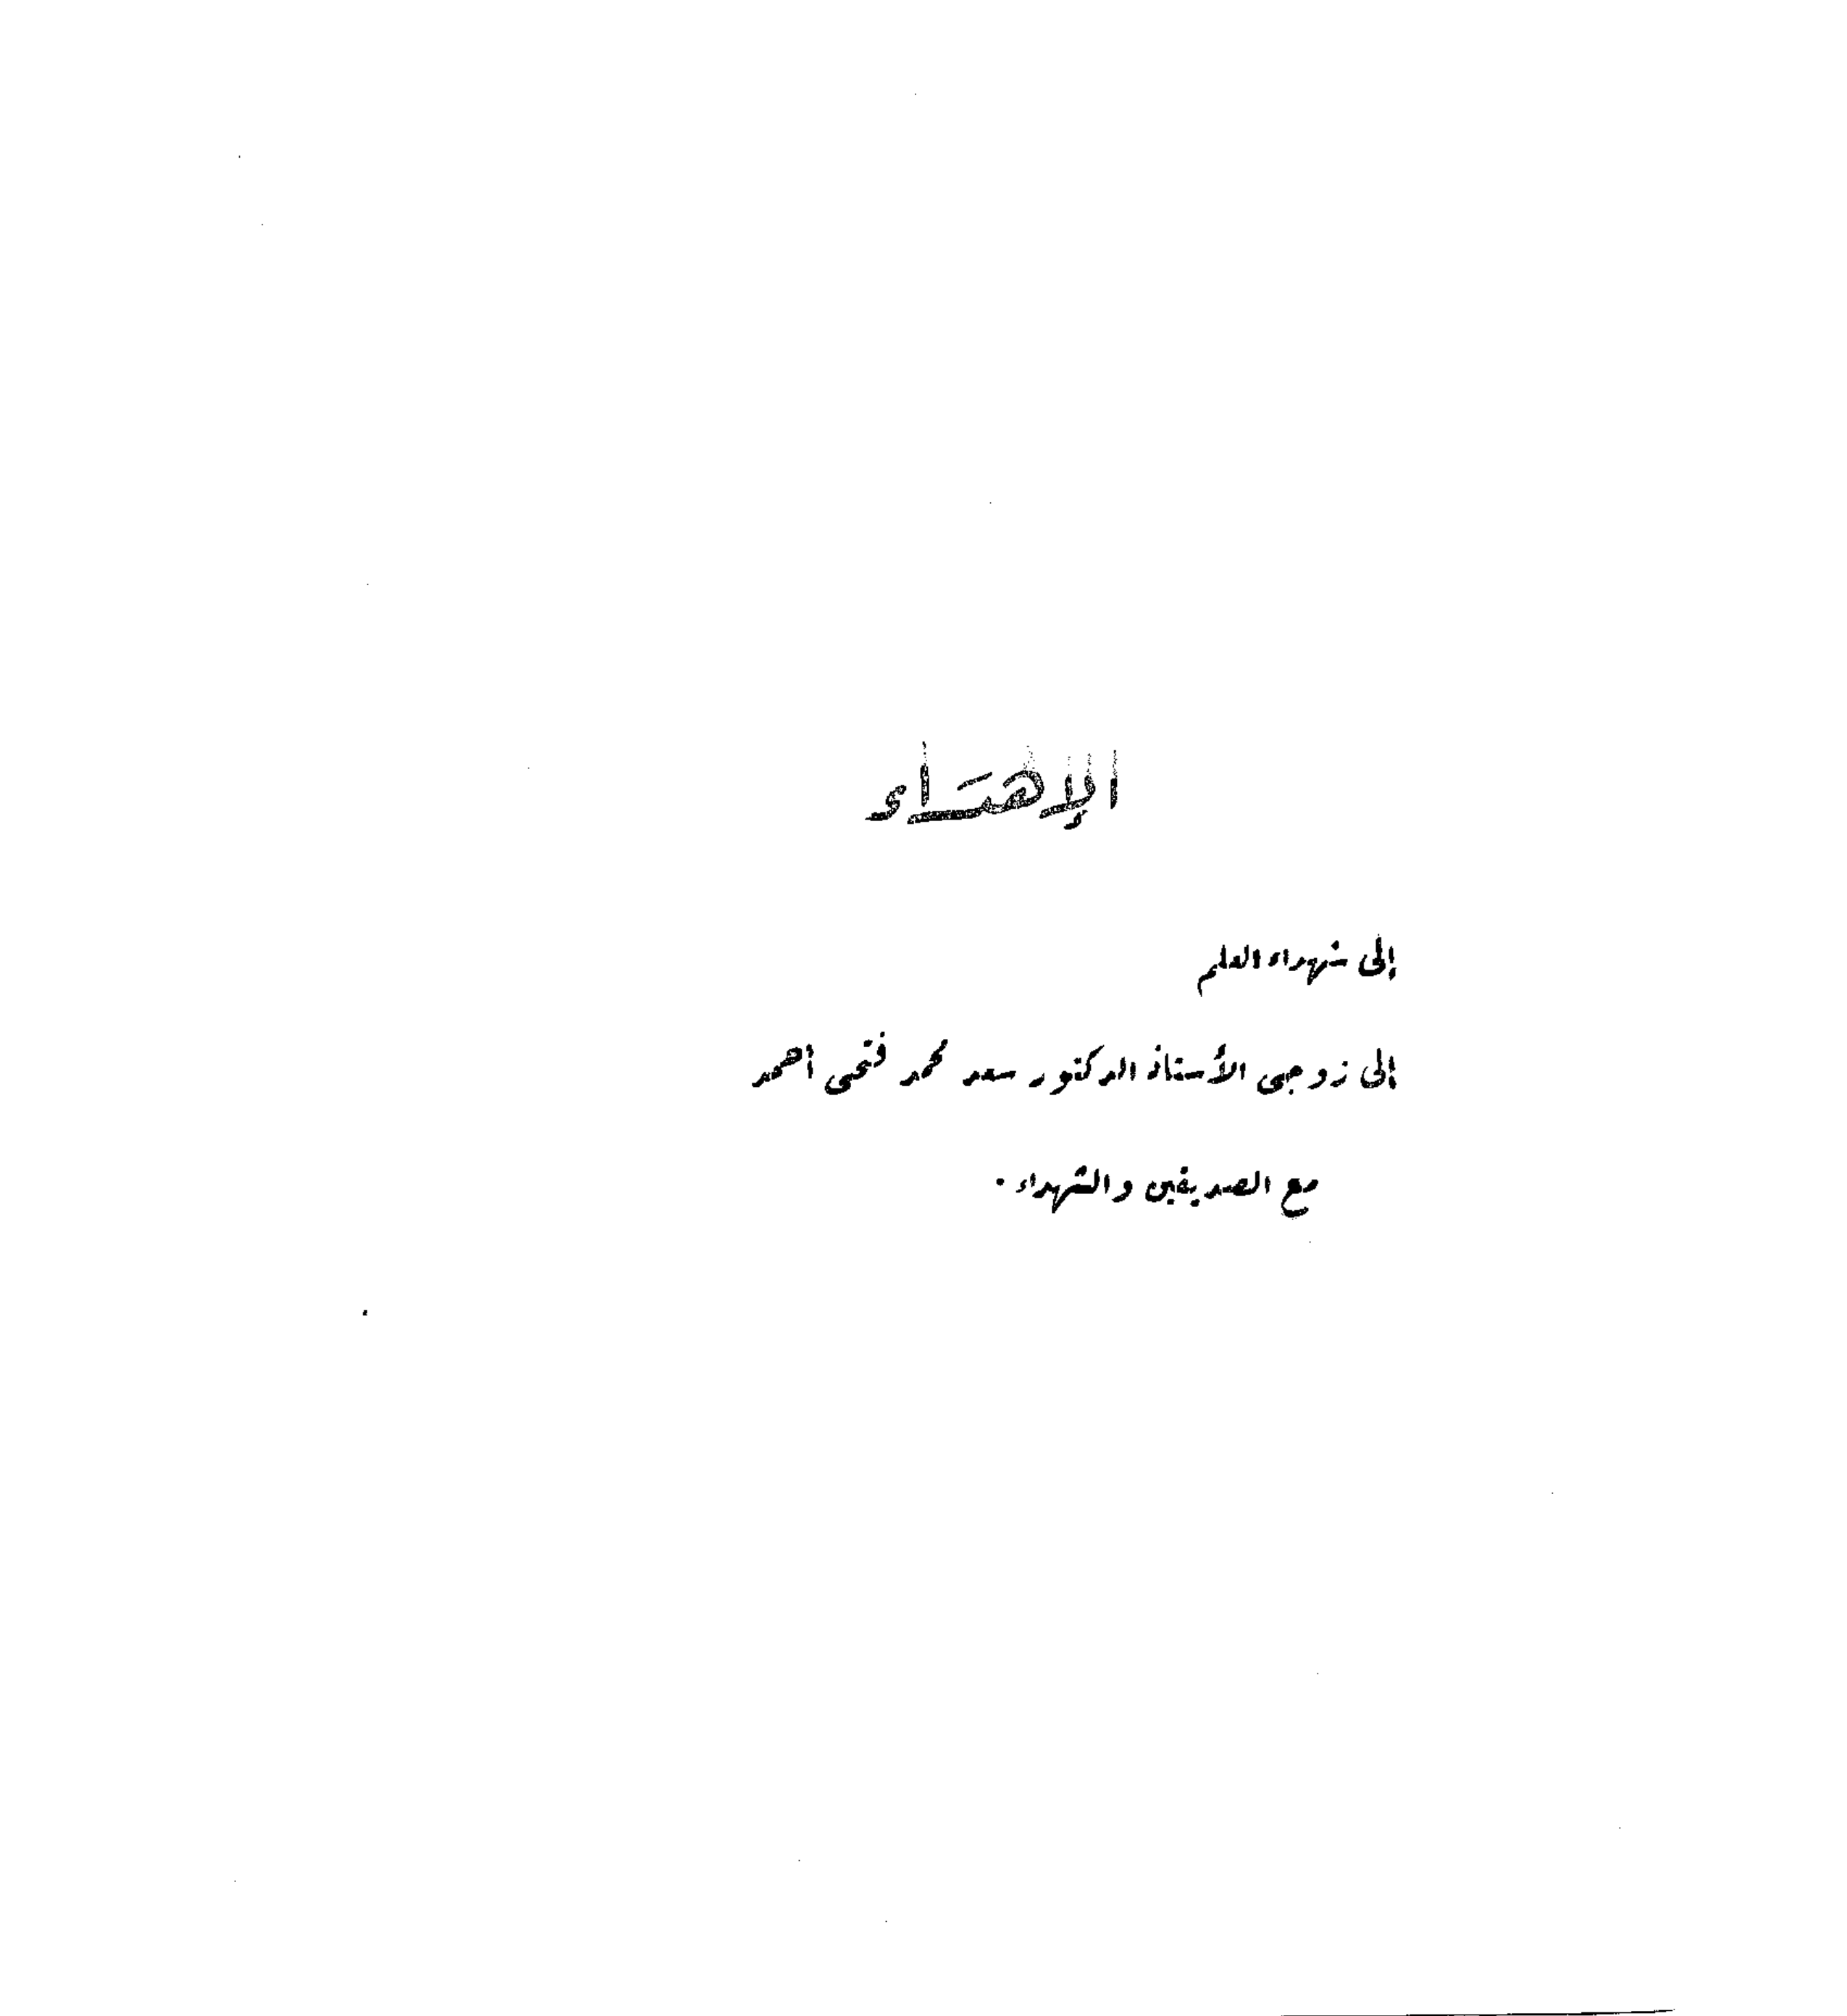 الإهداء
إلى شهداء العلم
إلى زوجى الأستاذ الدكتور سعد محمد فتحى أحمد
مع الصديقين والشهداء .